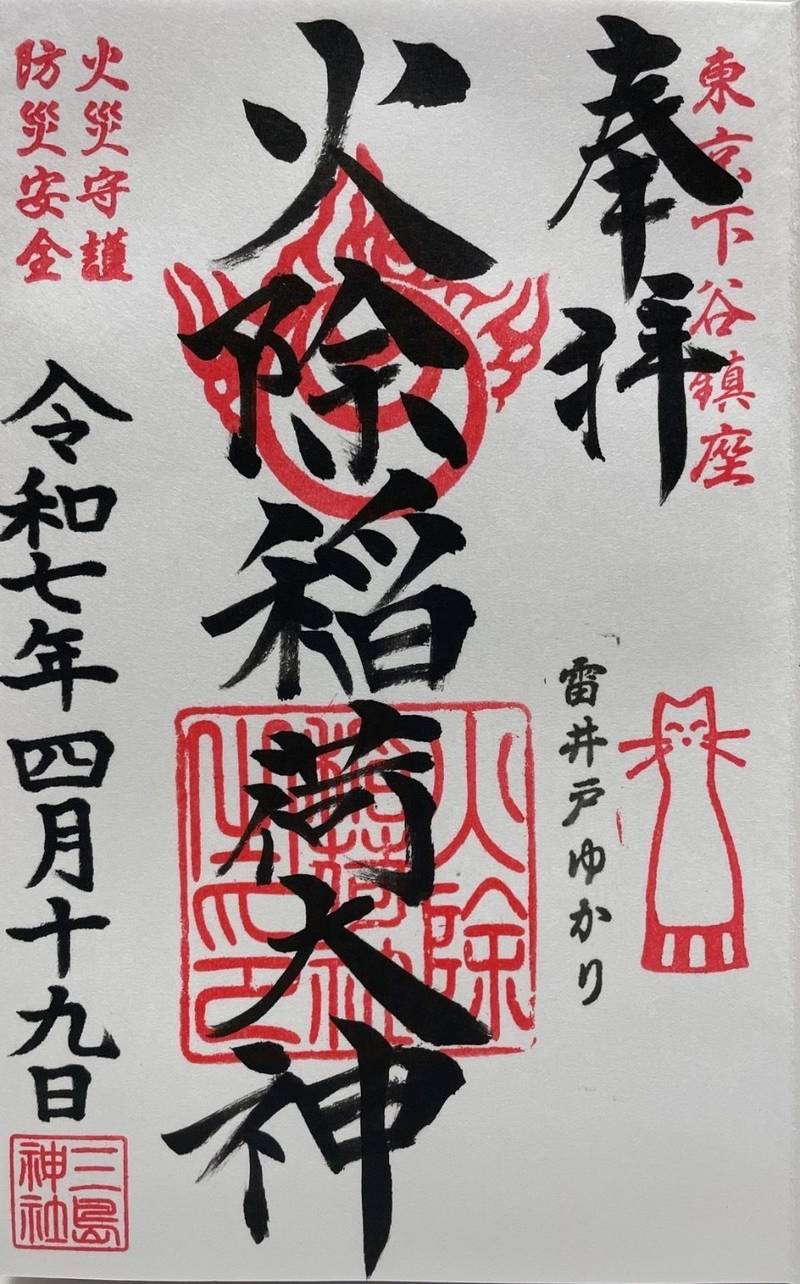 東京下谷鎮座
奉拝
雷井戸ゆかり
火除稲荷大神
火除
稲荷神社
之印
火災守護
防災安全
令和七年四月十九日
三島
神社